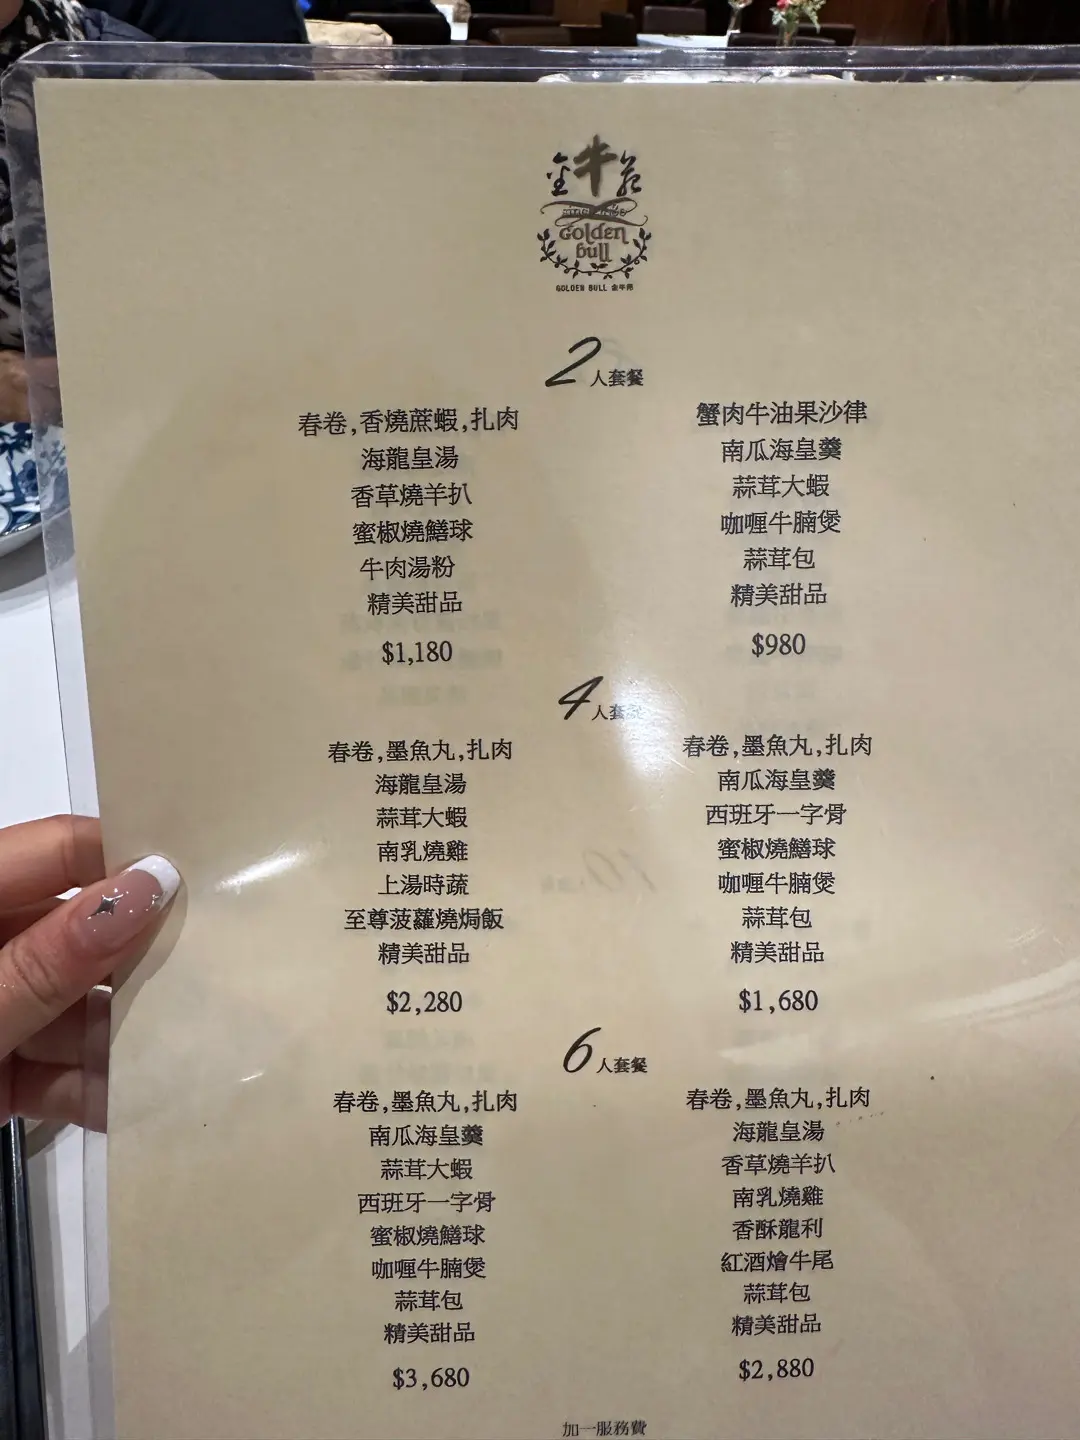 金牛苑
Golden
Bull
GOLDEN BULL 金牛苑
2人套餐
春卷,香燒蔗蝦,扎肉
海龍皇湯
香草燒羊扒
蜜椒燒鱔球
牛肉湯粉
精美甜品
$1,180
蟹肉牛油果沙律
南瓜海皇羹
蒜茸大蝦
咖喱牛腩煲
蒜茸包
精美甜品
$980
4人套
春卷,墨魚丸,扎肉
海龍皇湯
蒜茸大蝦
南乳燒雞
上湯時蔬
至尊菠蘿燒焗飯
精美甜品
$2,280
春卷,墨魚丸,扎肉
南瓜海皇羹
西班牙一字骨
蜜椒燒鱔球
咖喱牛腩煲
蒜茸包
精美甜品
$1,680
6人套餐
春卷,墨魚丸,扎肉
南瓜海皇羹
蒜茸大蝦
西班牙一字骨
蜜椒燒鱔球
咖喱牛腩煲
蒜茸包
精美甜品
$3,680
春卷,墨魚丸,扎肉
海龍皇湯
香草燒羊扒
南乳燒雞
香酥龍利
紅酒燴牛尾
蒜茸包
精美甜品
$2,880
加一服務費